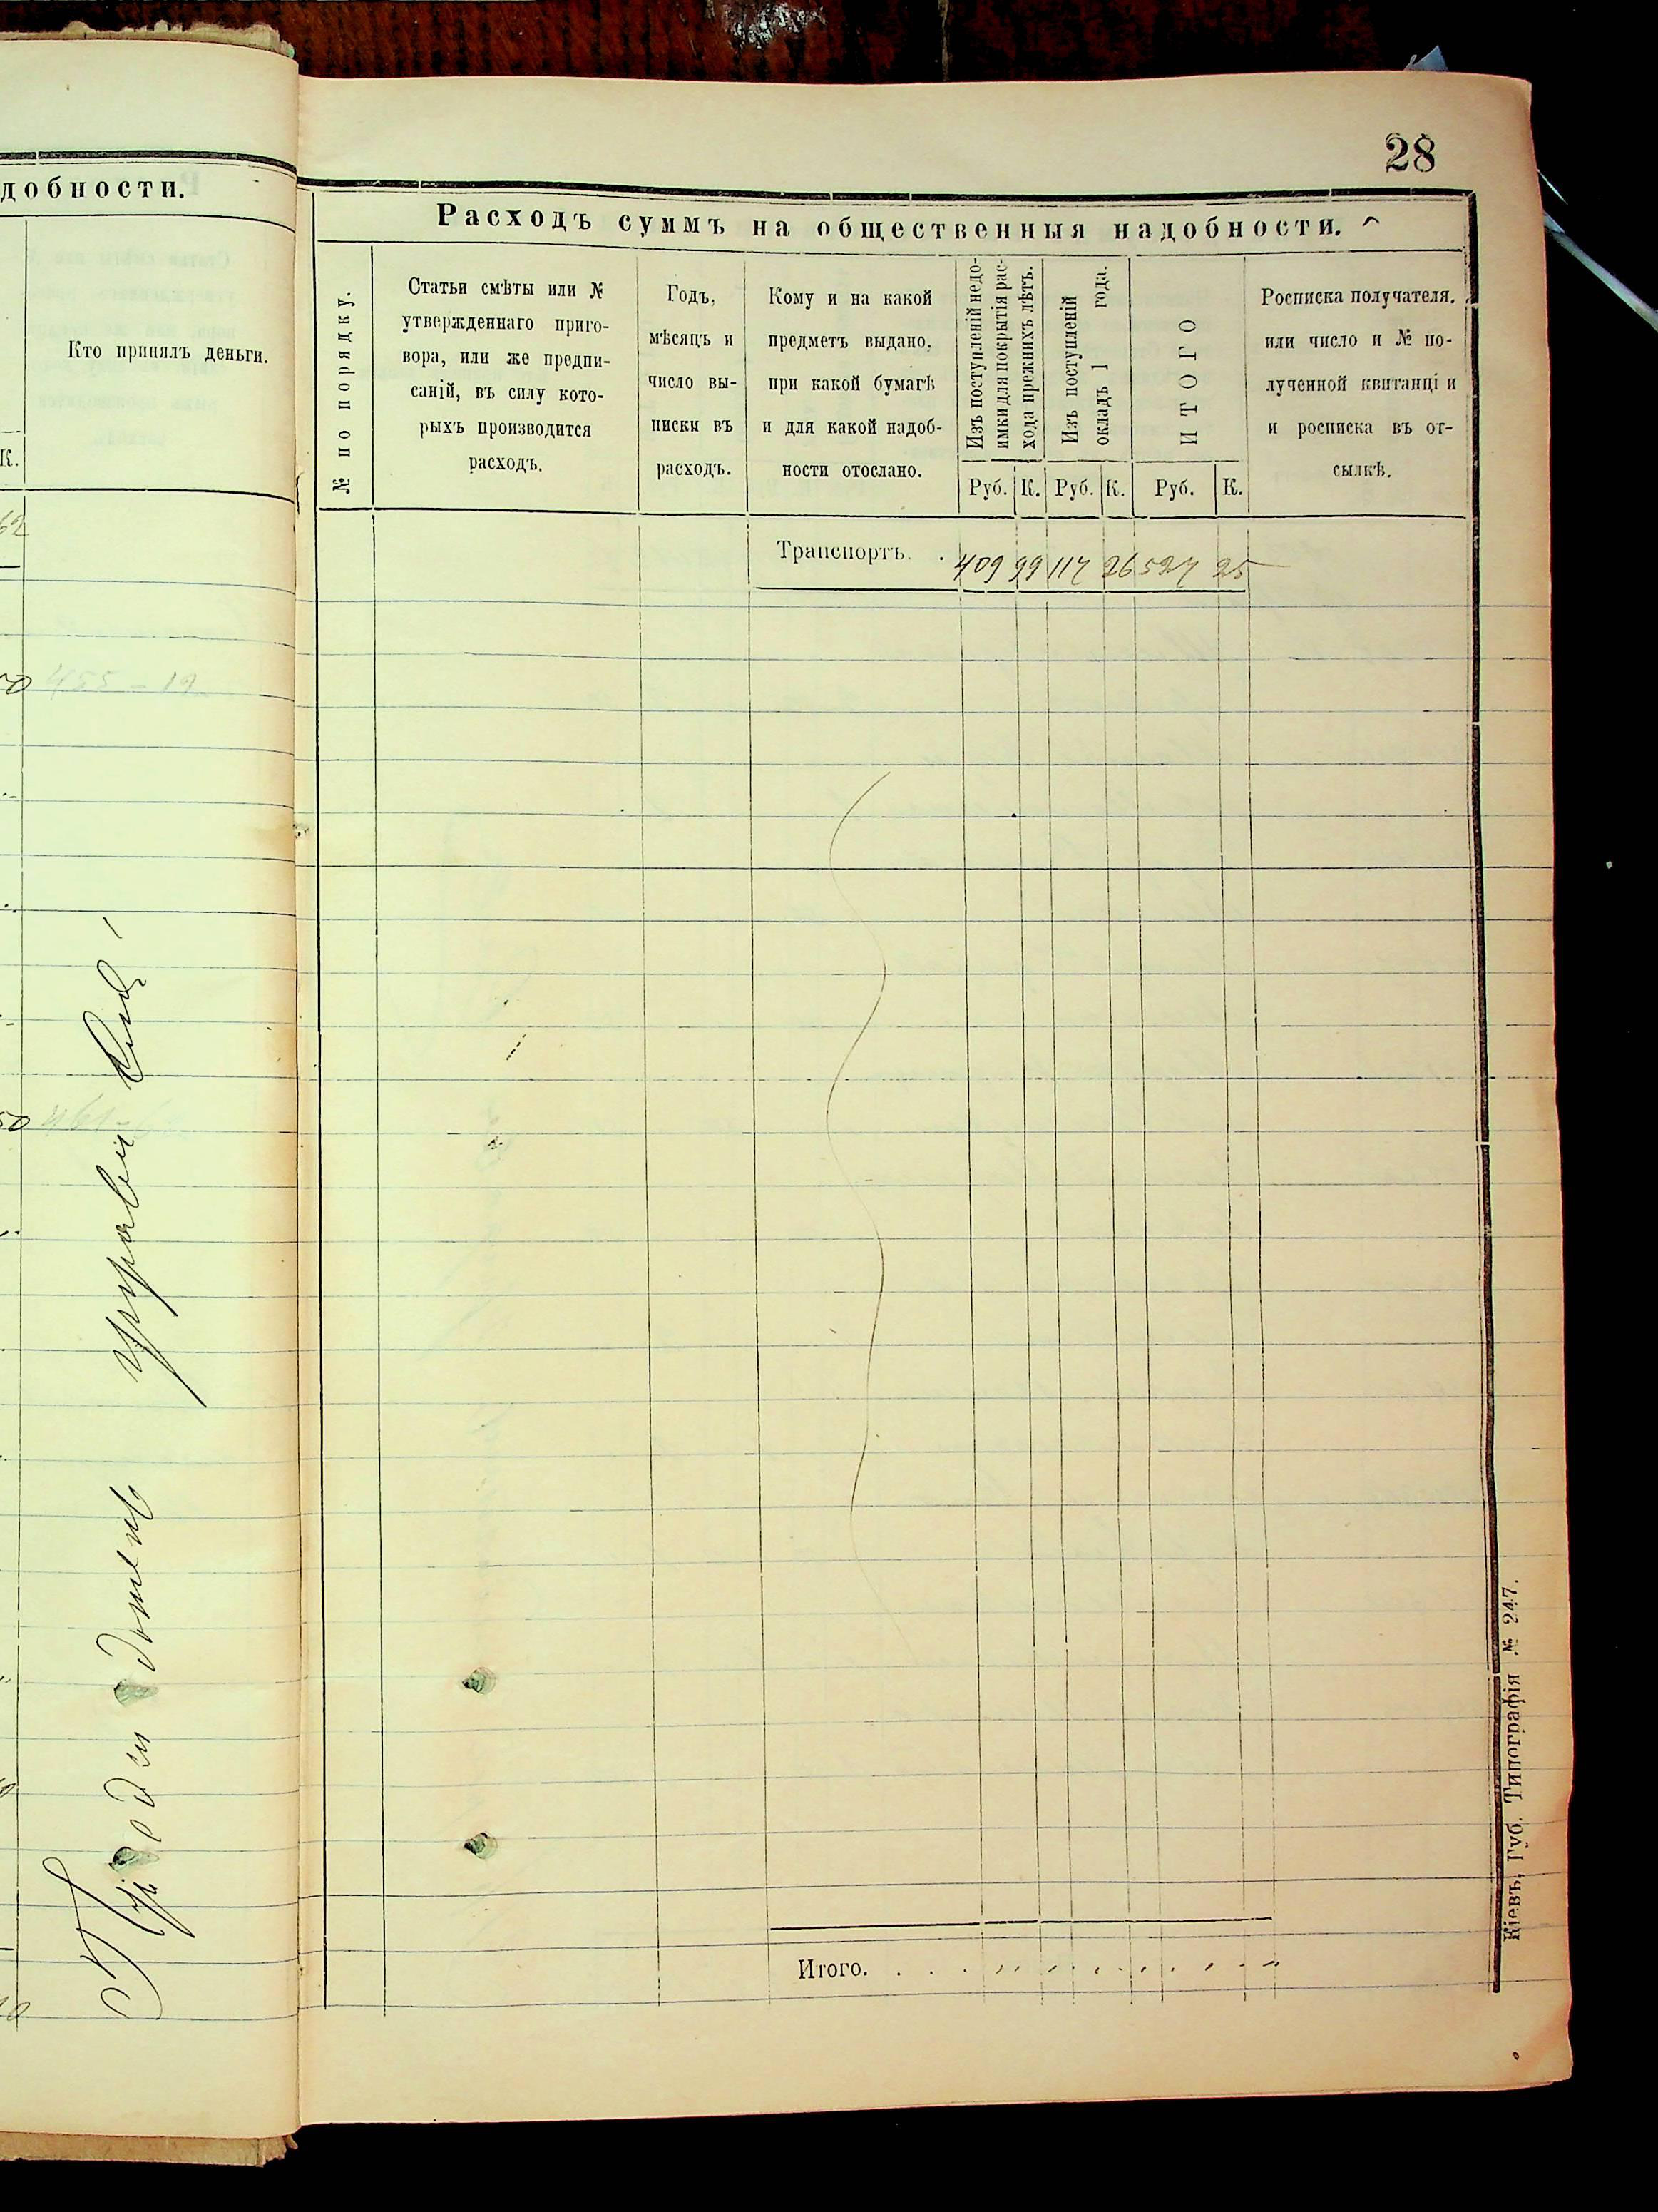 добности.
Кто принялъ деньги.
К.
62
50
455 - 19
50
28
Расходъ суммъ на общественныя надобности.
№ по порядку.
Статьи смѣты или №
утвержденнаго приго-
вора, или же предпи-
саній, въ силу кото-
рыхъ производится
расходъ.
Годъ,
мѣсяцъ и
число вы-
писки въ
расходъ.
Кому и на какой
предметъ выдано,
при какой бумагѣ
и для какой надоб-
ности отослано.
Изъ поступленій недо-
имки для покрытія рас-
хода прежнихъ лѣтъ.
Изъ поступленій
окладъ 1 года.
ИТОГО
Росписка получателя,
или число и № по-
лученной квитанціи
и росписка въ от-
сылкѣ.
Руб. К. Руб. К. Руб. К.
Транспортъ. . 409 99 117 26 527 25
Итого.
Кіевъ, Губ. Типографія № 247.